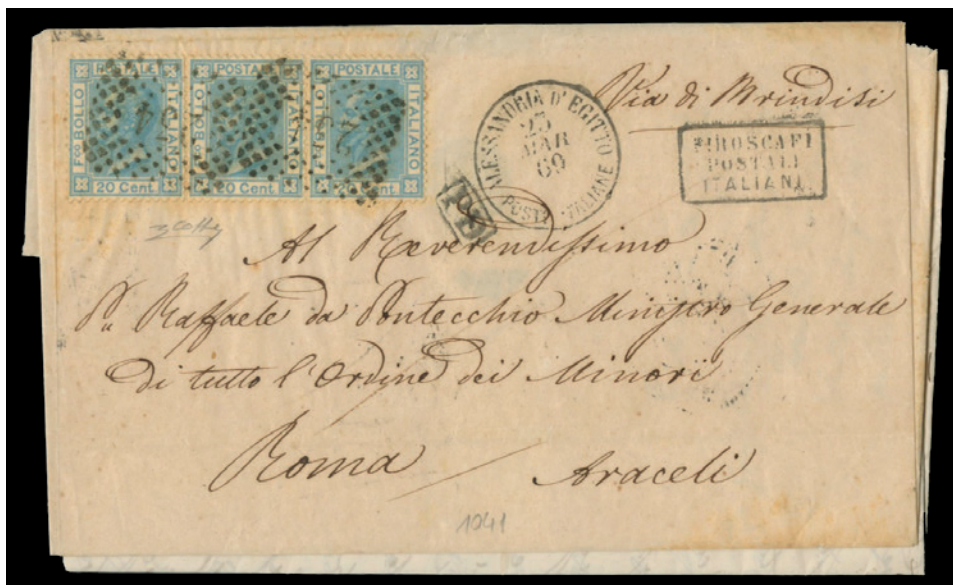 POSTALE POSTALE POSTALE
Fco BOLLO ITALIANO Fco BOLLO ITALIANO BOLLO ITALIANO
20 Cent. 20 Cent. 20 Cent.
234
ALESSANDRIA D'EGITTO
23
MAR
69
POSTE ITALIANE
Via di Brindisi
PIROSCAFI
POSTALI
ITALIANI
PD
Al Reverendissimo
P. Raffaele da Pontecchio Ministro Generale
di tutto l'Ordine dei Minori
Roma Araceli
1041